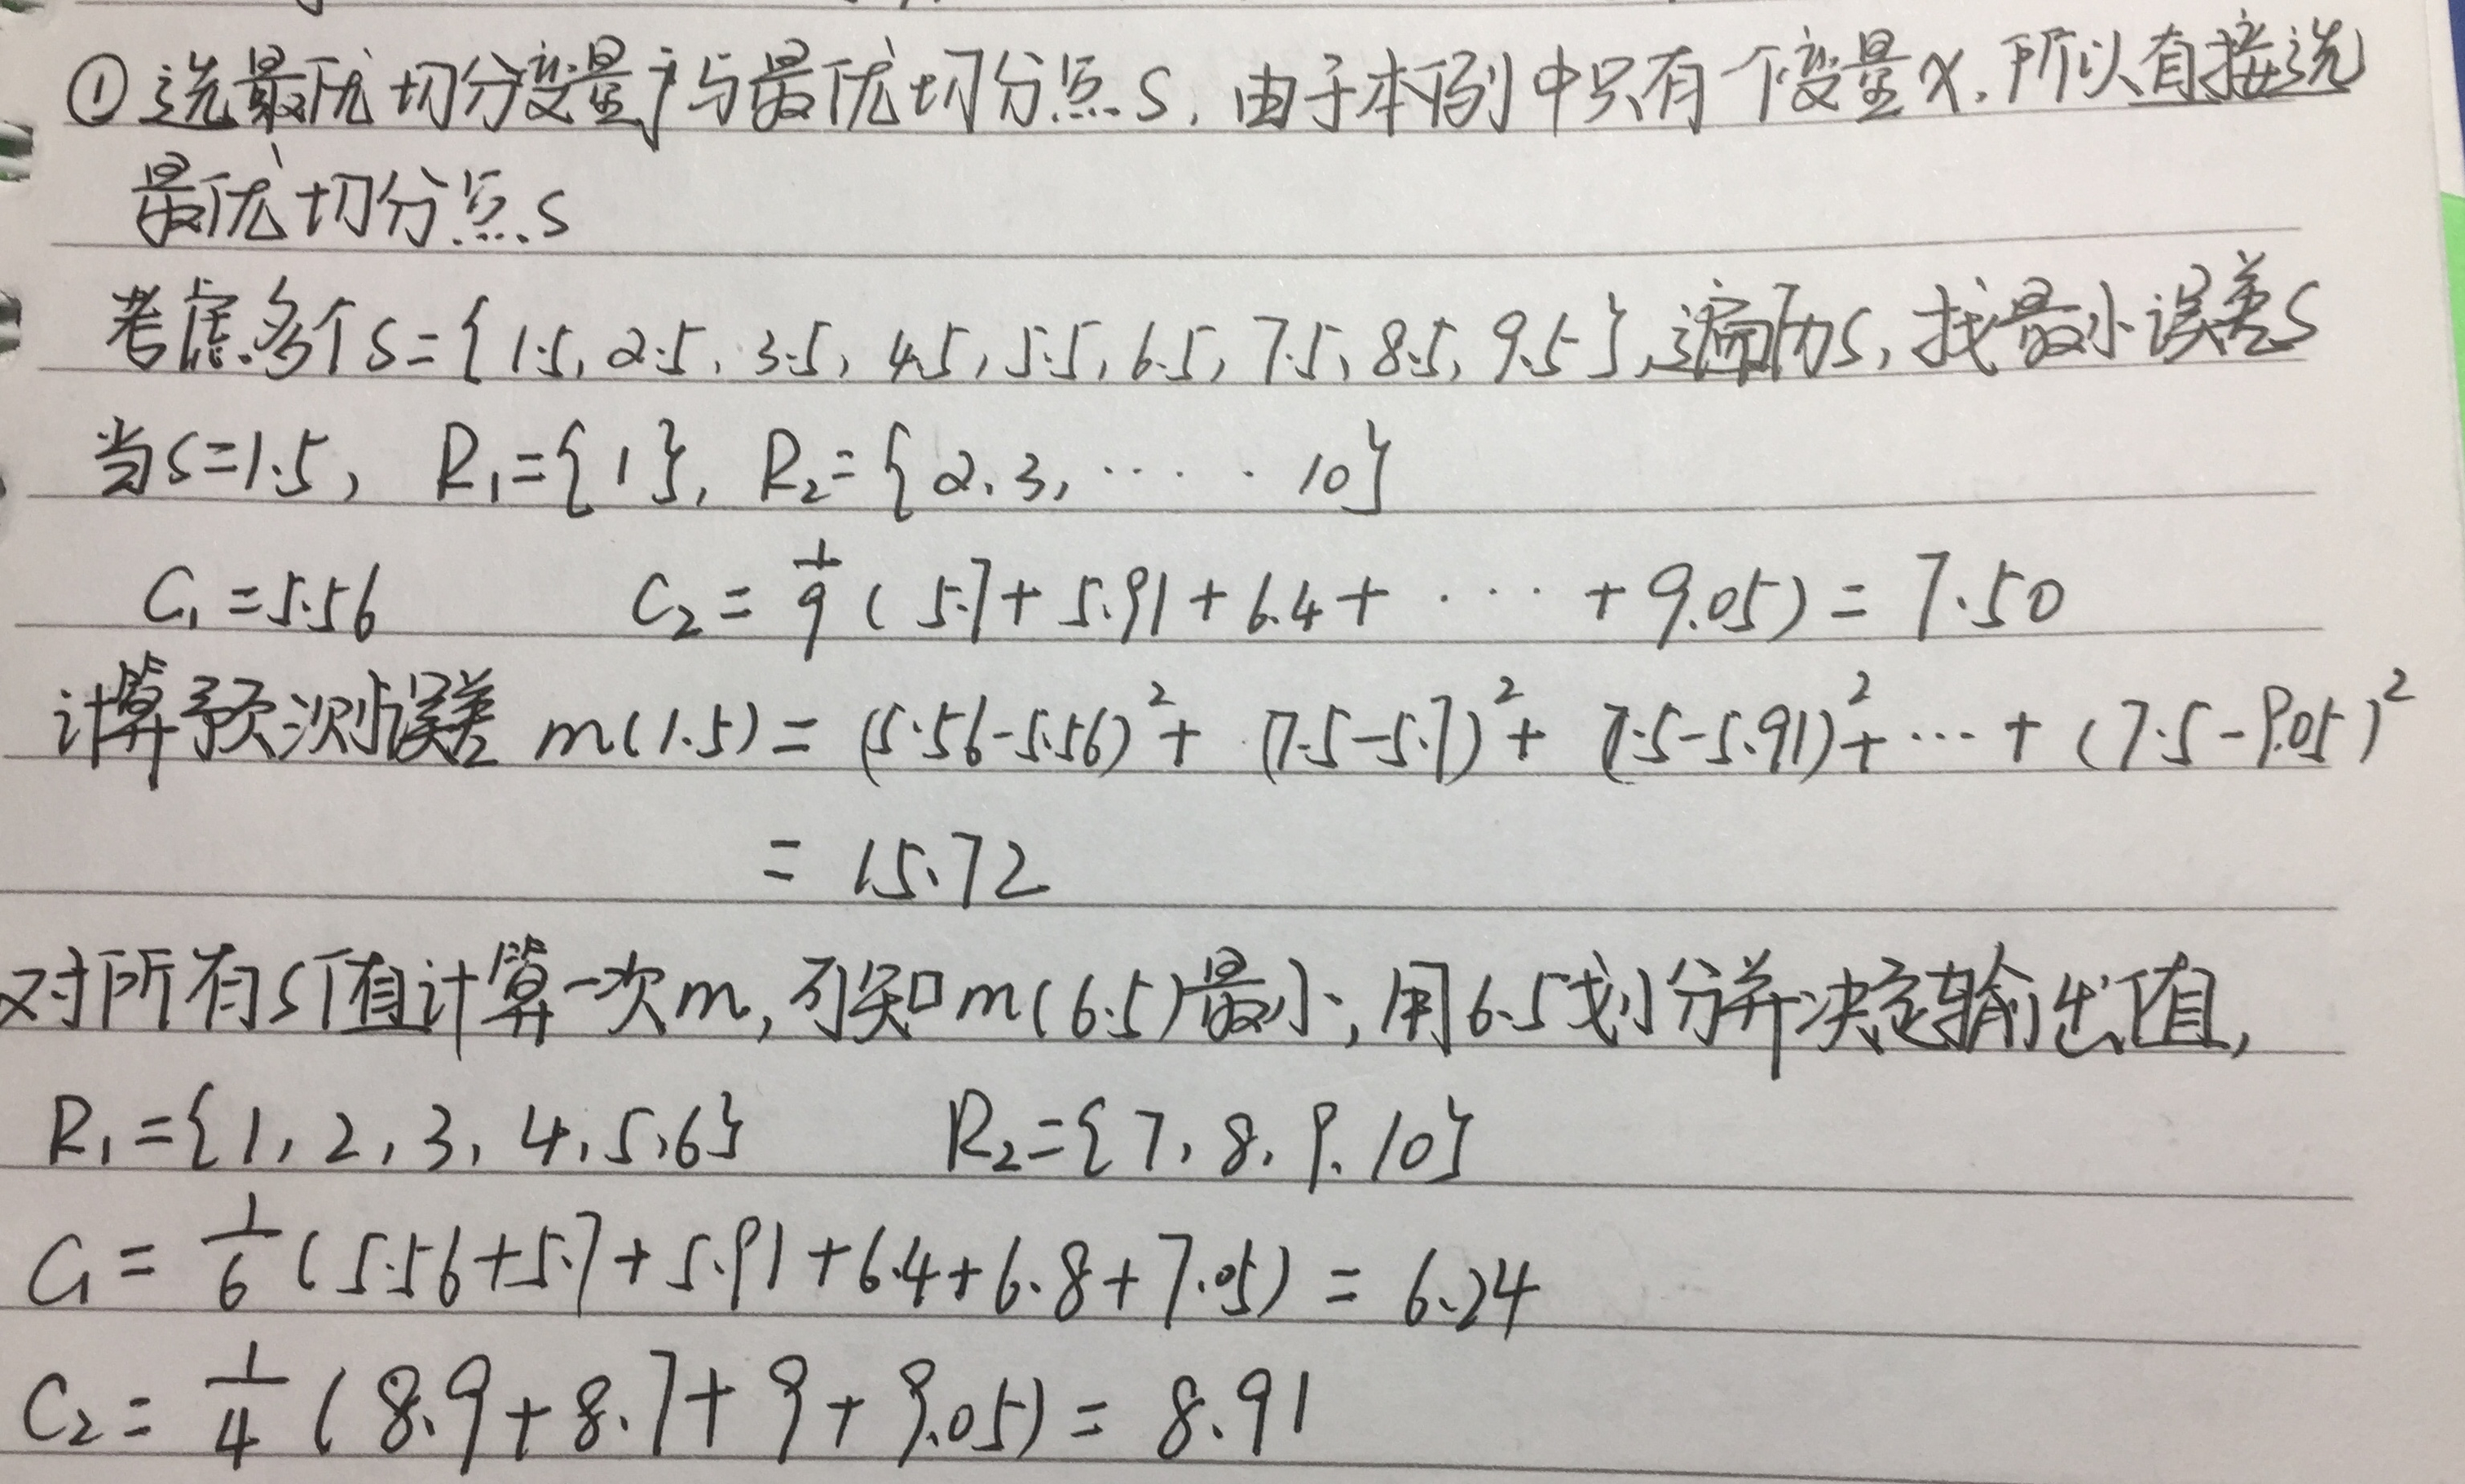 ①选最优切分变量j与最优切分点s,由于本例中只有一个变量x,所以直接选
最优切分点s
考虑多个s={1.5, 2.5, 3.5, 4.5, 5.5, 6.5, 7.5, 8.5, 9.5},遍历s,找最小误差s
当s=1.5, R₁={1}, R₂={2,3,······10}
C₁=5.56 C₂=1/9(5.7+5.91+6.4+···+9.05)=7.50
计算预测误差 m(1.5)=(5.56-5.56)²+(7.5-5.7)²+(7.5-5.91)²+···+(7.5-9.05)²
=15.72
对所有s值计算一次m,可知m(6.5)最小,用6.5划分并决定输出值,
R₁={1,2,3,4,5,6} R₂={7,8,9,10}
C₁=1/6(5.56+5.7+5.91+6.4+6.8+7.05)=6.24
C₂=1/4(8.9+8.7+9+9.05)=8.91